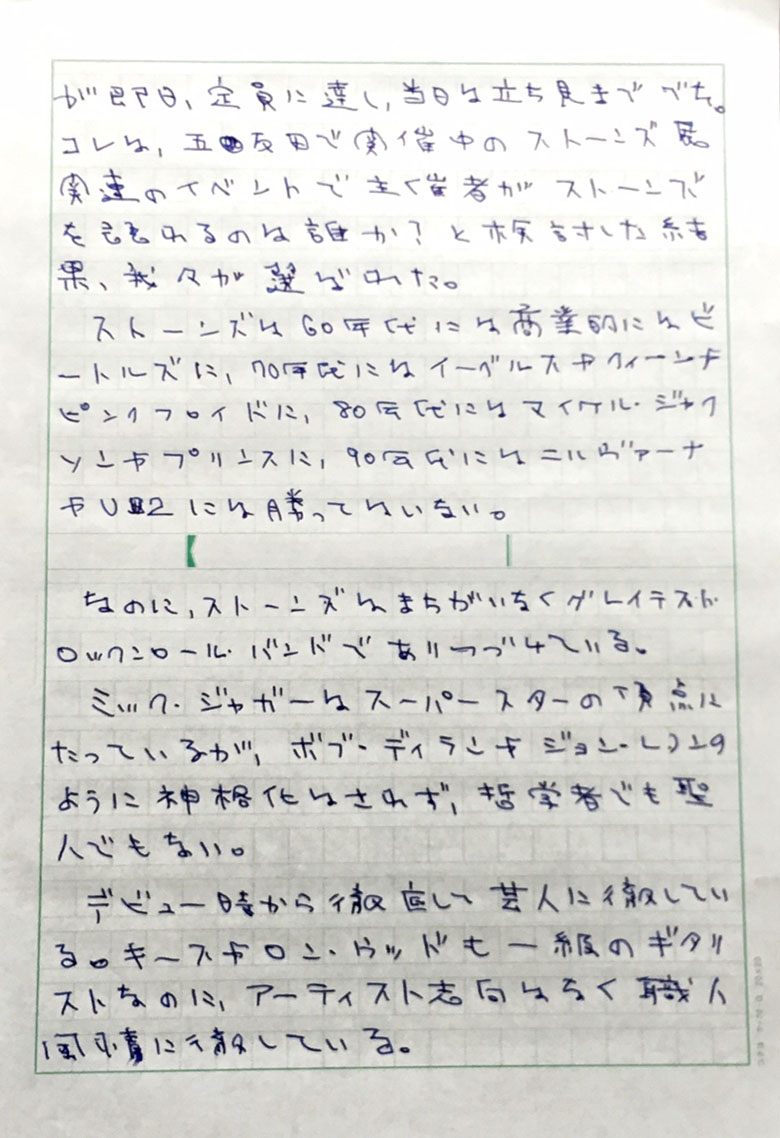 が即日、定員に達し、当日は立ち見まででた。
コレは、五反田で開催中のストーンズ展
関連のイベントで主催者がストーンズ
を語れるのは誰か?と検討した結
果、我々が選ばれた。
ストーンズは60年代には商業的にはビ
ートルズに、70年代にはイーグルスやクィーンや
ピンクフロイドに、80年代にはマイケル・ジャク
ソンやプリンスに、90年代にはニルヴァーナ
やU2には勝ってはいない。
なのに、ストーンズはまちがいなくグレイテスト・
ロックンロール・バンドでありつづけている。
ミック・ジャガーはスーパースターの頂点に
たっているが、ボブ・ディランやジョン・レノンの
ように神格化はされず、哲学者でも聖
人でもない。
デビュー時から徹底して芸人に徹してい
る。キースやロン・ウッドも一級のギタリ
ストなのに、アーティスト志向はなく職人
風情に徹している。